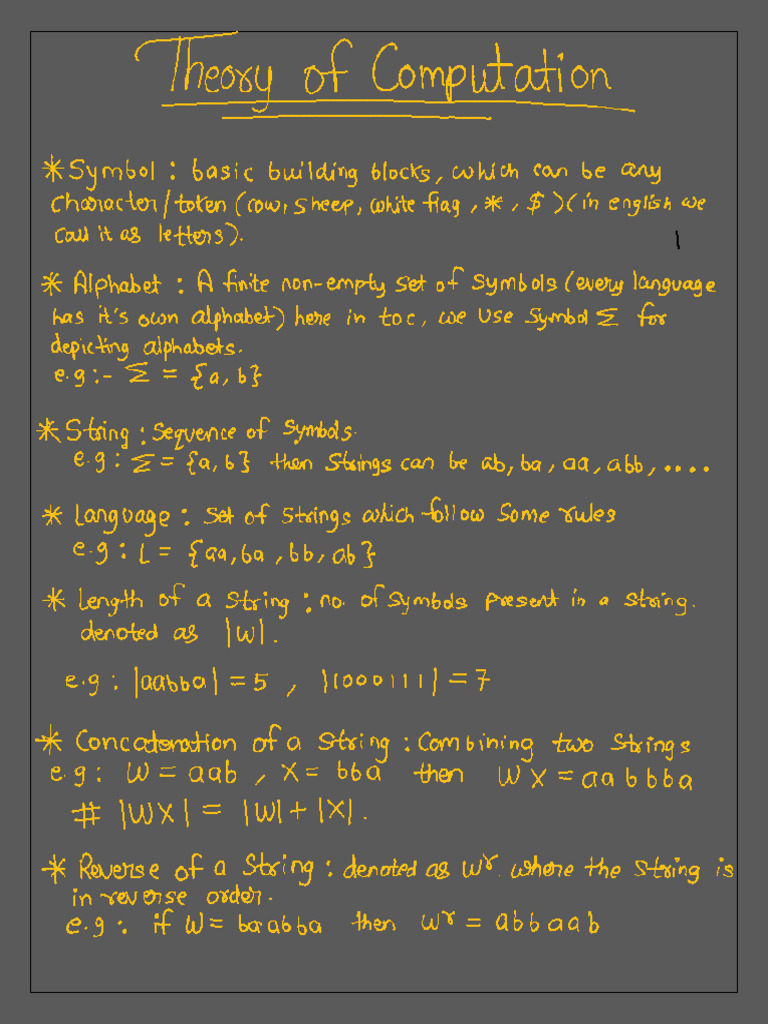 Theory of Computation
*Symbol : basic building blocks, which can be any
character/token (cow, sheep, white flag, *, $ )(in english we
call it as letters).
* Alphabet : A finite non-empty set of symbols (every language
has it's own alphabet) here in toc, we use symbol Σ for
depicting alphabets.
e.g :- Σ = {a, b}
* String : Sequence of symbols.
e.g : Σ = {a, b} then strings can be ab, ba, aa, abb, ....
* Language : set of strings which follow some rules
e.g : L = {aa, ba, bb, ab}
* Length of a string : no. of symbols present in a string.
denoted as |w|.
e.g : |aabba| = 5 , |1000111| = 7
* Concatenation of a string : Combining two strings
e.g : W = aab , X = bba then WX = aabbba
# |WX| = |W| + |X|.
* Reverse of a string : denoted as wʳ where the string is
in reverse order.
e.g : if W = baabba then wʳ = abbaab